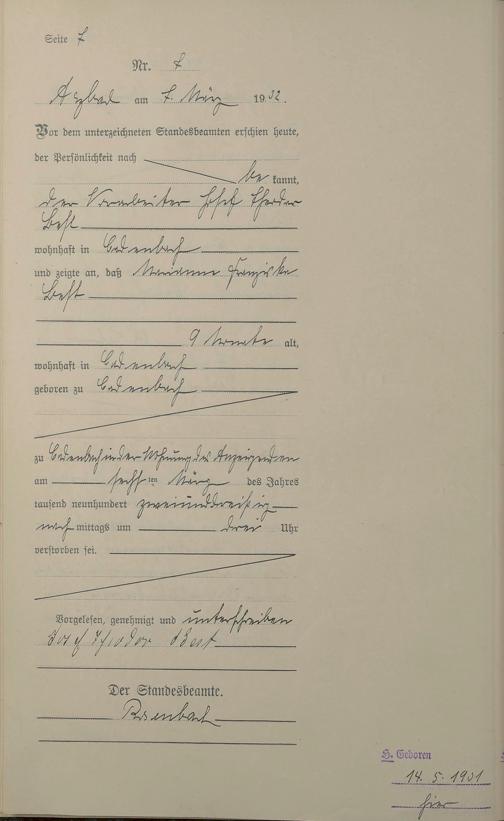 Seite 7
Nr. 7
Azbach am 7. März 1932.
Vor dem unterzeichneten Standesbeamten erschien heute,
der Persönlichkeit nach
be kannt,
der Vorarbeiter Josef Theodor
Best
wohnhaft in Cadenbach
und zeigte an, daß Marianne Franziska
Best
9 Monate alt,
wohnhaft in Cadenbach
geboren zu Cadenbach
zu Cadenbach in der Wohnung des Anzeigenden
am sechs ten März des Jahres
tausend neunhundert zweiunddreißig
nach mittags um drei Uhr
verstorben sei.
Vorgelesen, genehmigt und unterschrieben
Josef Theodor Best
Der Standesbeamte.
H. Geboren
14. 5. 1931
hier